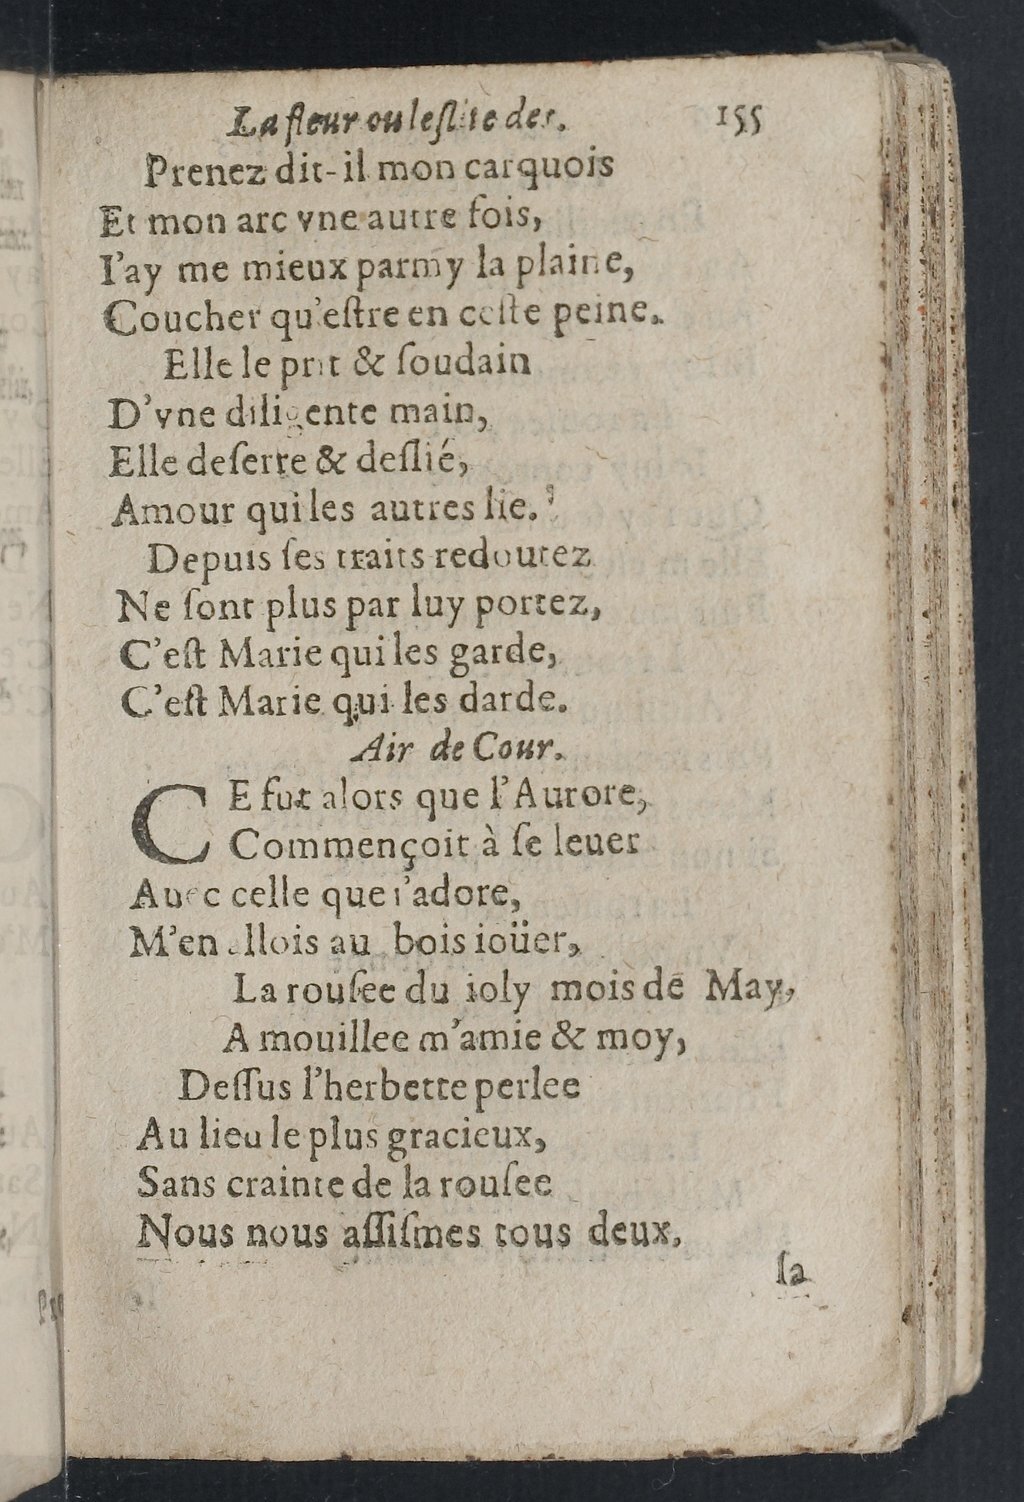 La fleur ou leſlite des.
155
Prenez dit-il mon carquois
Et mon arc vne autre fois,
I'ay me mieux parmy la plaine,
Coucher qu'eſtre en ceſte peine.
Elle le prit & ſoudain
D'vne diligente main,
Elle deſerre & deſlié,
Amour qui les autres lie.
Depuis ſes traits redoutez
Ne ſont plus par luy portez,
C'eſt Marie qui les garde,
C'eſt Marie qui les darde.
Air de Cour.
CE fut alors que l'Aurore,
Commençoit à ſe leuer
Auec celle que i'adore,
M'en allois au bois ioüer,
La rouſee du ioly mois de May,
A mouillee m'amie & moy,
Deſſus l'herbette perlee
Au lieu le plus gracieux,
Sans crainte de la rouſee
Nous nous aſſiſmes tous deux.
ſa